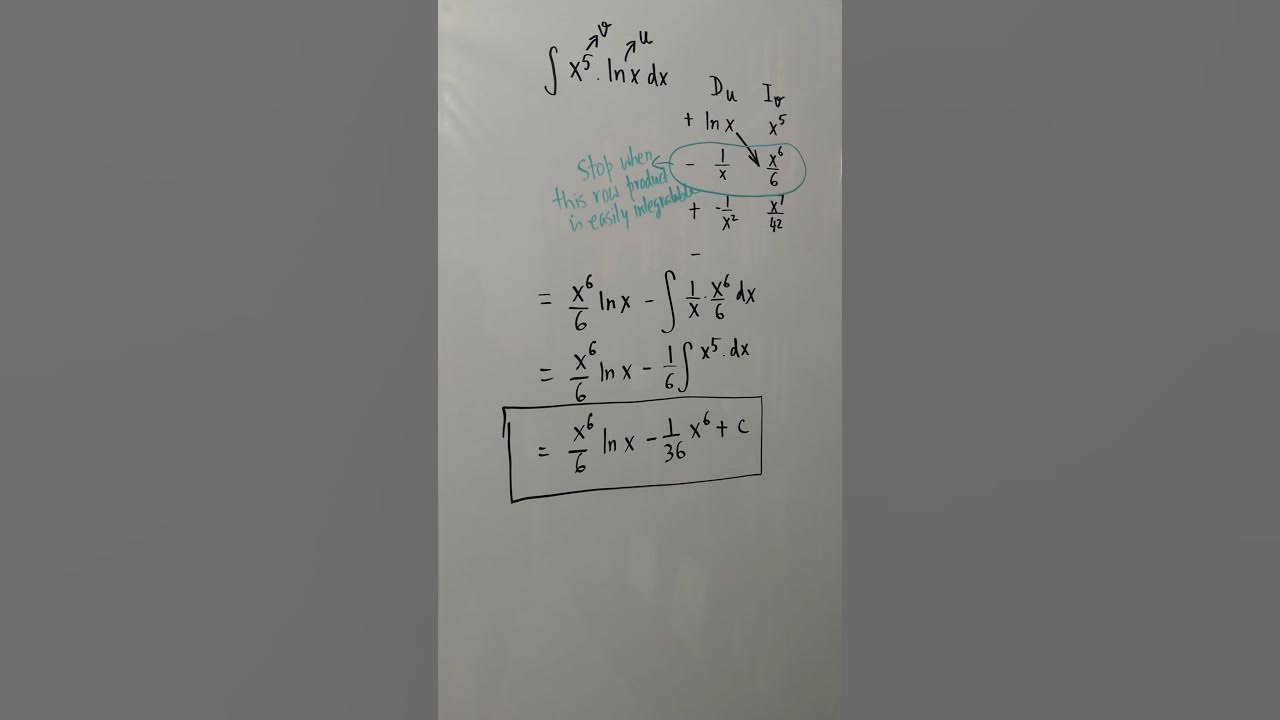 ∫ x⁵ . ln x dx
v
u
Du Iv
+ ln x x⁵
- 1/x x⁶/6
+ -1/x² x⁷/42
-
Stop when
this row product
is easily integratable
= x⁶/6 ln x - ∫ 1/x . x⁶/6 dx
= x⁶/6 ln x - 1/6 ∫ x⁵ . dx
= x⁶/6 ln x - 1/36 x⁶ + c